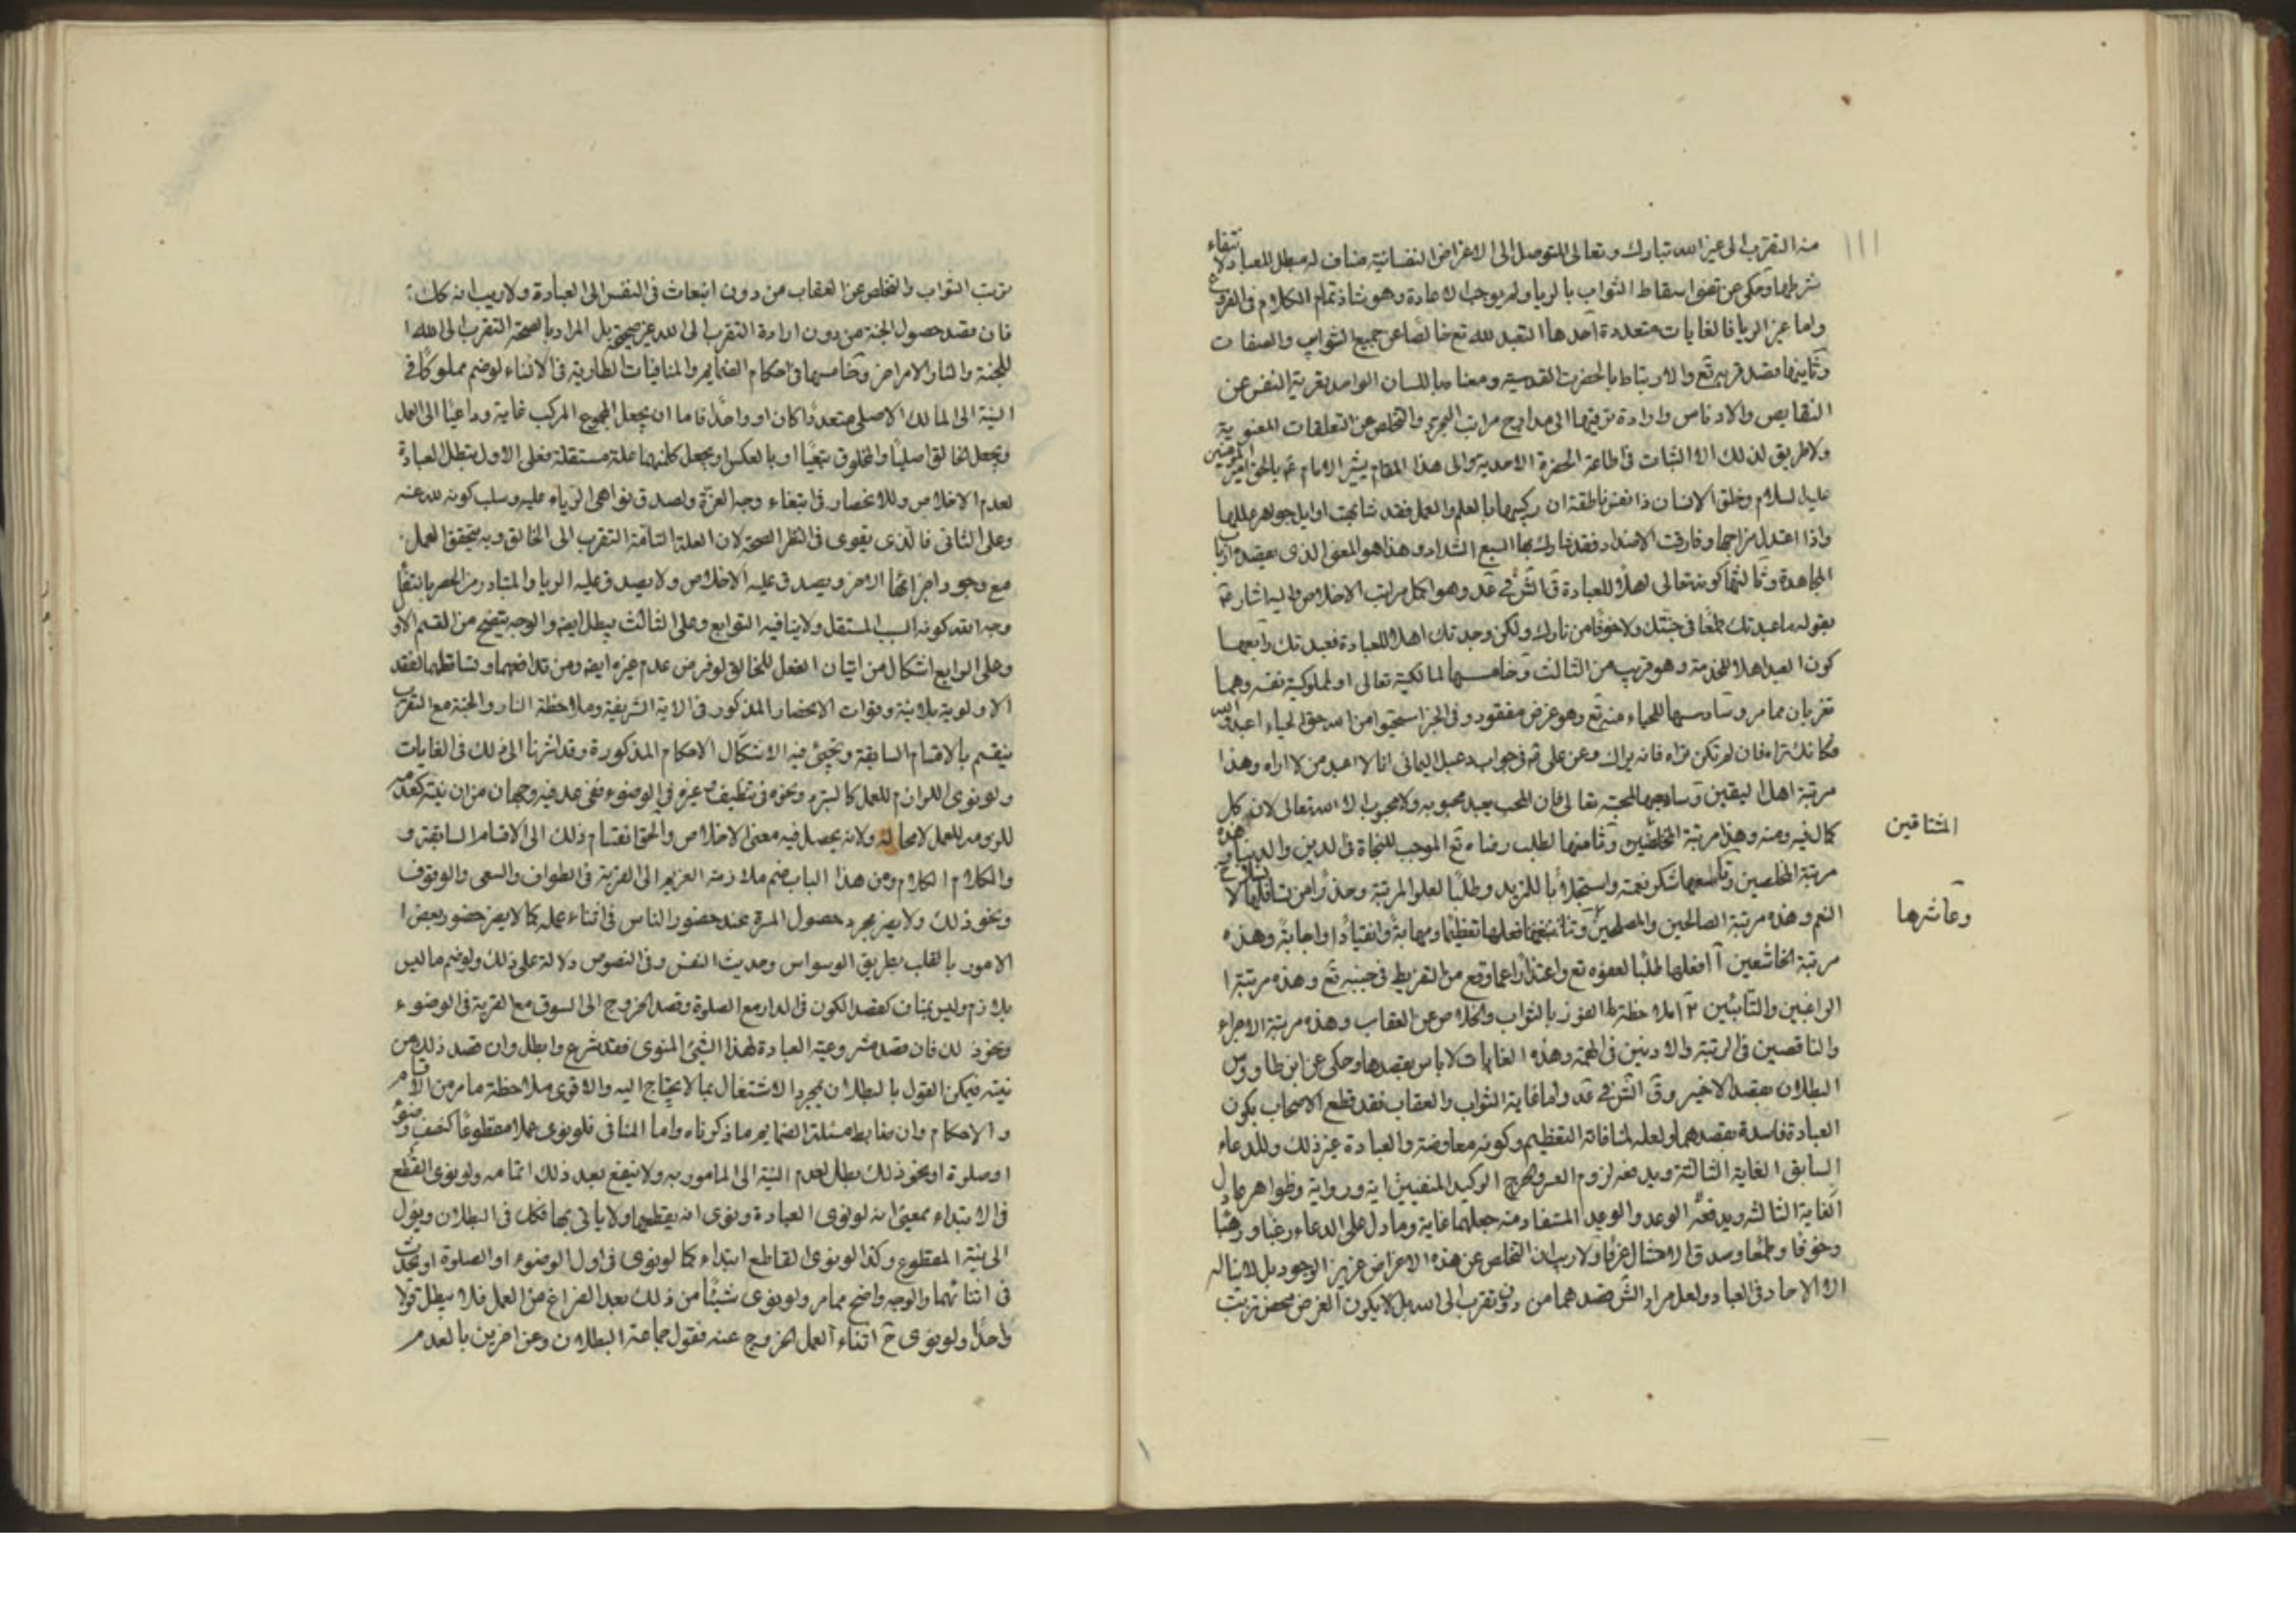 منه التقرب الى غير الله تبارك وتعالى للتوصل الى الاغراض النفسانية مناف له مبطل للعبادة لانتفاء
شرطها وحكى عن اسقاط الثواب بالريا ولم يوجب الاعادة وهو شاذ تمام الكلام فى الفروع
واما غير الريا فالغايات متعددة احدها التعبد لله تع خالصا عن جميع الشوايب والصفات
وثانيها قصد قربه تع والارتباط بالحضرت القدسية ومعناها بلسان الواصد تعرية النفس عن
النقايص والادناس وارادة ترقيتها الى مدارج مراتب التجرد والتخلص عن التعلقات المعنوية
ولا طريق لذلك الا الثبات فى اطاعة الحضرة الاحدية والى هذا المقام يشير الامام بالحق امير المؤمنين
عليه السلام وخلق الانسان ذا نفس ناطقة ان زكيها بالعلم والعمل فقد شابهت اوايل جواهر عللها
واذا اعتدل مزاجها وفارقت الاضداد فقد شارك بها السبع الشداد وهذا هو المعنى الذى يقصده ارباب
المجاهدة وثالثها كونه تعالى اهلا للعبادة قال الش فى عد وهو اكمل مراتب الاخلاص واليه اشار ع
بقوله ما عبدتك طمعًا فى جنتك ولا خوفًا من نارك ولكن وجدتك اهلا للعبادة فعبدتك ورابعها
كون العبد اهلا للخدمة وهو قريب من الثالث وخامسها لمالكية تعالى او لمملوكية نفسه وهما
تقربان مما مر وسادسها للحياء منه تع وهو غرض مقصود وفى الخبر استحيوا من الله حق الحياء اعبد الله
كانك تراه فان لم تكن تراه فانه يراك وعن على ع فى جواب ذعبل اليمانى انا لا اعبد من لا اراه وهذا
مرتبة اهل اليقين وسابعها المحبة تعالى فان المحب يعبد محبوبه ولا محبوب الا الله تعالى لانه كل
كمال فيه ومنه وهذا مرتبة المخلصين وثامنها لطلب رضاه تع الموجب للنجاة فى الدين والدنيا وهذه
المشتاقين
مرتبة المخلصين وتاسعها شكر نعمته واستجلابا للمزيد وطلبًا لعلو المرتبة وحذرًا من
النعم وهذه مرتبة الصالحين والمصلحين فعلها تعظيمًا ومهابةً وانقيادًا واجابةً وهذه
وعاشرها
مرتبة الخاشعين ١١ فعلها طلبًا لعفوه تع واعتذارًا عما وقع من التفريط فى جنبه تع وهذه مرتبة ا
الراغبين والتائبين ١٢ ملاحظة الفوز بالثواب والخلاص عن العقاب وهذه مرتبة الاجراء
والناقصين فى الرتبة والادنين فى الهمة وهذه الغايات لا باس بقصدها وحكى عن ابن طاووس
البطلان بقصد الاخير وق الش فى عد واما غاية الثواب والعقاب فقد قطع الاصحاب بكون
العبادة فاسدة بقصدهما ولعله لمنافاته التعظيم وكونه معاوضة والعبادة غير ذلك وللدعاء
السابق الغاية الثالثة ويدفعه لزوم العسر والحرج الوكيد المنفيين اية ورواية وظواهر ما دل
الغاية الثالثه ويدفعه الوعد والوعيد المستفاد منه جعلهما غاية وما دل على الدعاء رغبا ورهبًا
وخوفًا وطمعًا وصدق الامتثال عرفًا ولا ريب ان التخلص عن هذه الاعراض عزيز الوجود بل لا يناله
الا الاحاد فى العباد ولعل مراد الش قصدهما من دون تقرب الى الله بل لا يكون الغرض محض ترتب
ترتب الثواب والتخلص عن العقاب من دون انبعاث فى النفس الى العبادة ولا ريب انه كك
فان قصد حصول الجنة من دون ارادة التقرب الى الله غير صحيحة بل المراد بالصحة التقرب الى الله ا
للجنة والنار الامر اخر وخامسها فى احكام الضمايم والمنافيات الطارية فى الاثناء لو ضم مملوكًا فى
النية الى المالك الاصلى متعددًا كان او واحدًا فاما ان يجعل المجموع المركب غاية وداعيًا الى العمل
ويجعل الخالق اصليًا والمخلوق تبعيًا او بالعكس او يجعل كلا منهما علة مستقلة فعلى الاول تبطل العبادة
لعدم الاخلاص وللانحصار فى ابتغاء وجه العزة ولصدق نواهى الرياء عليه وسلب كونه لله عنه
وعلى الثانى فالذى يقوى فى النظر الصحة لان العلة التامة التقرب الى الخالق وبه يتحقق العمل
مع وجود اجزائها الاخر ويصدق عليه الاخلاص ولا يصدق عليه الريا والمتبادر من الحصر بابتغاء
وجه الله كونه السبب المستقل ولا ينافيه التوابع وعلى الثالث يبطل ايضا والوجه يتضح من القسم الاول
وعلى الرابع اشكال من اتيان الفعل للخالق لو فرض عدم غيره ايضا ومن تدافعهما وتساقطهما لفقد
الاولوية بلا بينة وفوات الانحصار المذكور فى الاية الشريفة وملاحظة النار والجنة مع التقرب
ينقسم بالاقسام السابقة ويجئ فيه الاشكال الاحكام المذكورة وقد اشرنا الى ذلك فى الغايات
ولو نوى اللوازم للعمل كالتبرد ونحوه فى تنظيف غيره فى الوضوء ففى عد فيه وجهان من ان نيته كعدمه
للزومه للعمل لا محالة ولانه يحصل فيه معنى الاخلاص والحق انقسام ذلك الى الاقسام السابقة وف
والكلام الكلام ومن هذا الباب ضم ملازمة الغريم الى القربة فى الطواف والسعى والوقوف
ونحو ذلك ولا يضر مجرد حصول المسرة عند حضور الناس فى اثناء عمله كما لا يضر حضور بعض ا
الامور بالقلب بطريق الوسواس وحديث النفس وفى النصوص دلالة على ذلك ولو ضم ما ليس
بلازم وليس بمناف كقصد الكون فى الدار مع الصلوة وقصد الخروج الى السوق مع القربة فى الوضوء
ونحو ذلك فان قصد مشروعية العبادة لهذا الشئ المنوى فقد شرع وابطل وان قصد ذلك من
نيته فيمكن القول بالبطلان بمجرد الاشتغال بما لا يحتاج اليه والاقوى ملاحظة ما مر من الاقسام
والاحكام وان ضابط مسئلة الضمايم ما ذكرناه واما المنافى فلو نوى عملا مقطوعًا كنصف وضوء
او صلوة او نحو ذلك بطل لعدم النية الى المامور به ولا ينفع بعد ذلك اتمامه ولو نوى القطع
فى الابتداء بمعنى انه لو نوى العبادة ونوى انه يقطعها ولا ياتى بها فكك فى البطلان ويؤل
الى نية المقطوع وكذا لو نوى القاطع ابتداء كما لو نوى فى اول الوضوء او الصلوة او تحدث
فى اثنائهما والوجه واضح مما مر ولو نوى شيئًا من ذلك بعد الفراغ من العمل فلا يبطل قولا
واحدًا ولو نوى ح اثناء العمل الخروج عنه فقول جماعة البطلان وعن اخرين بالعدم